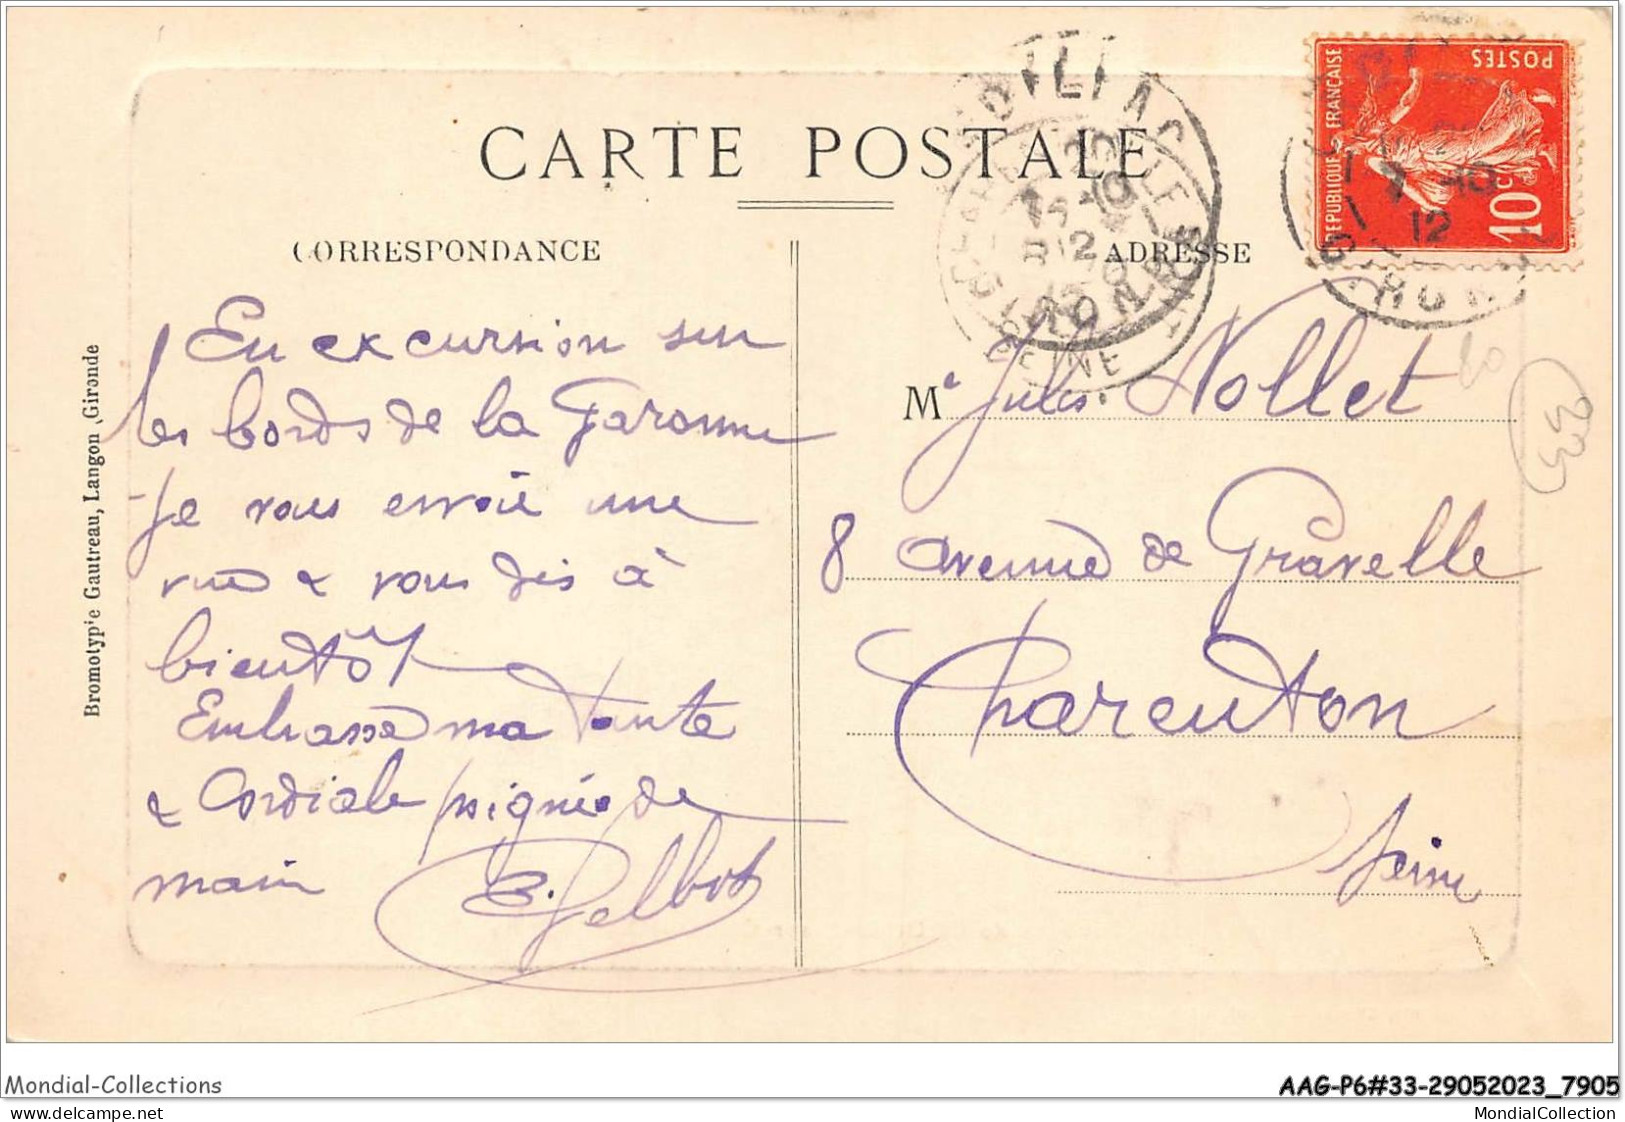 CARTE POSTALE
CORRESPONDANCE
ADRESSE
REPUBLIQUE FRANÇAISE
POSTES
10c
Bromotypie Gautreau, Langon, Gironde
En excursion sur
les bords de la Garonne
je vous envoie une
vue & vous dis à
bientôt
Embrasse ma tante
& Cordiale poignée de
main
Me Jules Nollet
8 avenue de Gravelle
Charenton
Seine
33
Mondial-Collections
AAG-P6#33-29052023_7905
MondialCollection